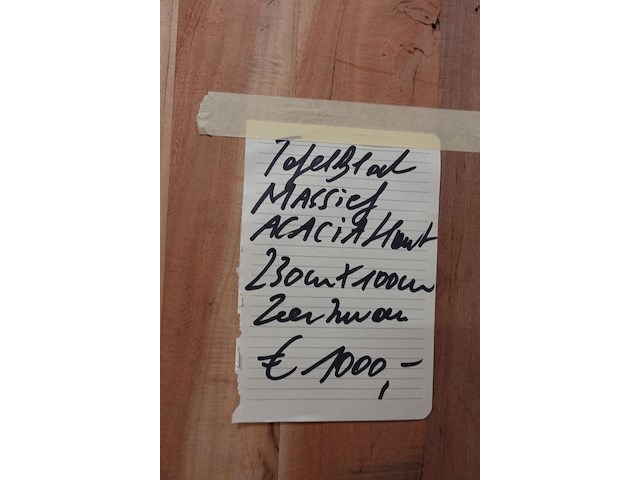 Tafelblad
MASSief
ACACiA Hout
230cm X 100cm
Zeer zwaar
€ 1000,-